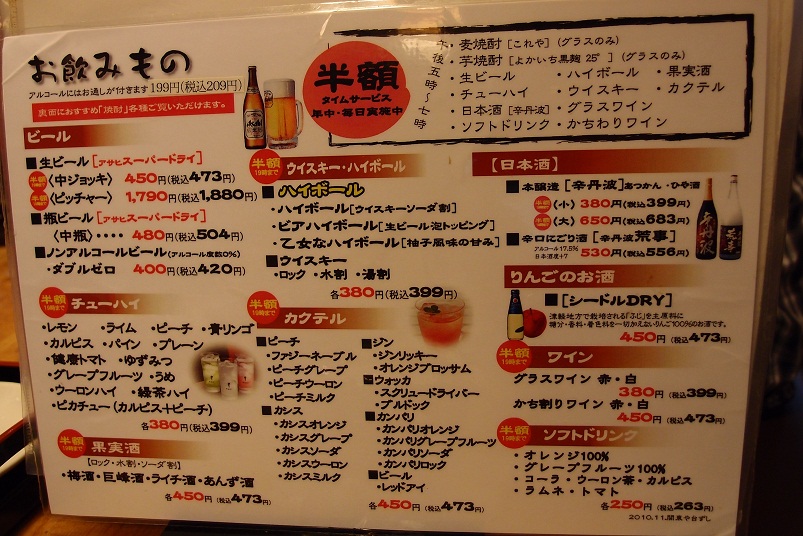 お飲みもの
アルコールにはお通しが付きます 199円(税込209円)
裏面におすすめ「焼酎」各種ご覧いただけます。
半額
タイムサービス
年中・毎日実施中
午後五時〜七時
・麦焼酎［これや］（グラスのみ）
・芋焼酎［よかいち黒麹 25°］（グラスのみ）
・生ビール ・ハイボール ・果実酒
・チューハイ ・ウイスキー ・カクテル
・日本酒［辛丹波］・グラスワイン
・ソフトドリンク ・かちわりワイン
ビール
■生ビール［アサヒスーパードライ］
半額 19時まで 〈中ジョッキ〉 450円(税込473円)
半額 19時まで 〈ピッチャー〉 1,790円(税込1,880円)
■瓶ビール［アサヒスーパードライ］
〈中瓶〉・・・・ 480円(税込504円)
■ノンアルコールビール(アルコール度数0%)
・ダブルゼロ 400円(税込420円)
半額 19時まで チューハイ
・レモン ・ライム ・ピーチ ・青リンゴ
・カルピス ・パイン ・プレーン
・健康トマト ・ゆずみつ
・グレープフルーツ ・うめ
・ウーロンハイ ・緑茶ハイ
・ピカチュー(カルピス+ピーチ)
各380円(税込399円)
半額 19時まで 果実酒
［ロック・水割・ソーダ割］
・梅酒・巨峰酒・ライチ酒・あんず酒
各450円(税込473円)
半額 19時まで ウイスキー・ハイボール
■ハイボール
・ハイボール［ウイスキーソーダ割］
・ビアハイボール［生ビール泡トッピング］
・乙女なハイボール［柚子風味の甘み］
■ウイスキー
・ロック ・水割 ・湯割
各380円(税込399円)
半額 19時まで カクテル
■ピーチ
・ファジーネーブル
・ピーチグレープ
・ピーチウーロン
・ピーチミルク
■カシス
・カシスオレンジ
・カシスグレープ
・カシスソーダ
・カシスウーロン
・カシスミルク
■ジン
・ジンリッキー
・オレンジブロッサム
■ウォッカ
・スクリュードライバー
・ブルドック
■カンパリ
・カンパリオレンジ
・カンパリグレープフルーツ
・カンパリソーダ
・カンパリロック
■ビール
・レッドアイ
各450円(税込473円)
【日本酒】
■本醸造［辛丹波］あつかん・ひや酒
半額 19時まで 〈小〉 380円(税込399円)
半額 19時まで 〈大〉 650円(税込683円)
■辛口にごり酒［辛丹波 荒事］
アルコール 17.5%
日本酒度+7
530円(税込556円)
辛丹波
りんごのお酒
■［シードルDRY］
津軽地方で栽培される「ふじ」を主原料に
糖分・香料・着色料を一切加えないりんご100%のお酒です。
450円(税込473円)
半額 19時まで ワイン
グラスワイン 赤・白
380円(税込399円)
かち割りワイン 赤・白
450円(税込473円)
半額 19時まで ソフトドリンク
・オレンジ100%
・グレープフルーツ100%
・コーラ・ウーロン茶・カルピス
・ラムネ・トマト
各250円(税込263円)
2010.11.関東や台ずし